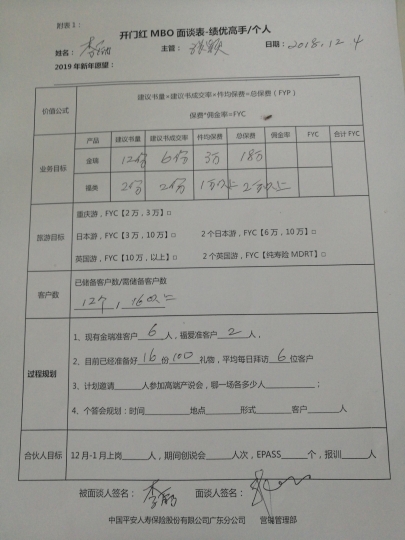 附表1：
开门红 MBO 面谈表-绩优高手/个人
姓名： 主管： 日期：2018.12.4
2019年新年愿望：
价值公式 建议书量×建议书成交率×件均保费=总保费（FYP）
保费*佣金率=FYC
业务目标 产品 建议书量 建议书成交率 件均保费 总保费 佣金率 FYC 合计FYC
金瑞 12份 6份 3万 18万
福类 2份 2份 1万以上 2万以上
旅游目标 重庆游，FYC【2万，3万】□
日本游，FYC【3万，10万】□ 2个日本游，FYC【6万，10万】□
英国游，FYC【10万，以上】□ 2个英国游，FYC【纯寿险 MDRT】□
客户数 已储备客户数/需储备客户数
12个，16
过程规划 1、现有金瑞准客户 6 人，福爱准客户 2 人，
2、目前已经准备好 16 份 100 礼物，平均每日拜访 6 位客户
3、计划邀请 人参加高端产说会，哪一场各多少人 ；
4、个答会规划：时间 地点 形式 客户 人
合伙人目标 12月-1月上岗 人，期间创说会 人次，EPASS 个，报训 人
被面谈人签名： 面谈人签名：
中国平安人寿保险股份有限公司广东分公司 营销管理部